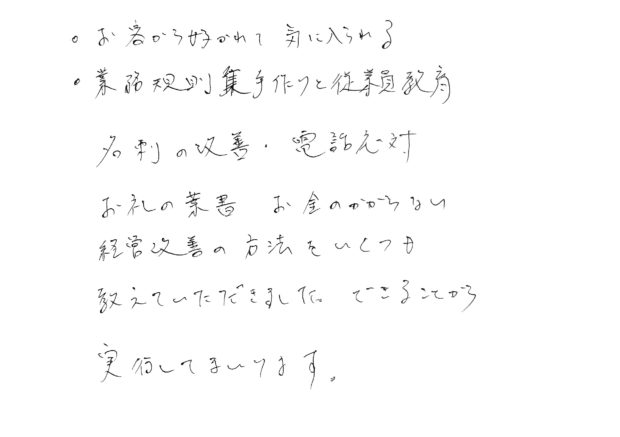 。お客から好かれて 気に入られる
・業務規則集手作りと従業員教育
名刺の改善・電話応対
お礼の葉書 お金のかからない
経営改善の方法をいくつも
教えていただきました。できることから
実行してまいります。